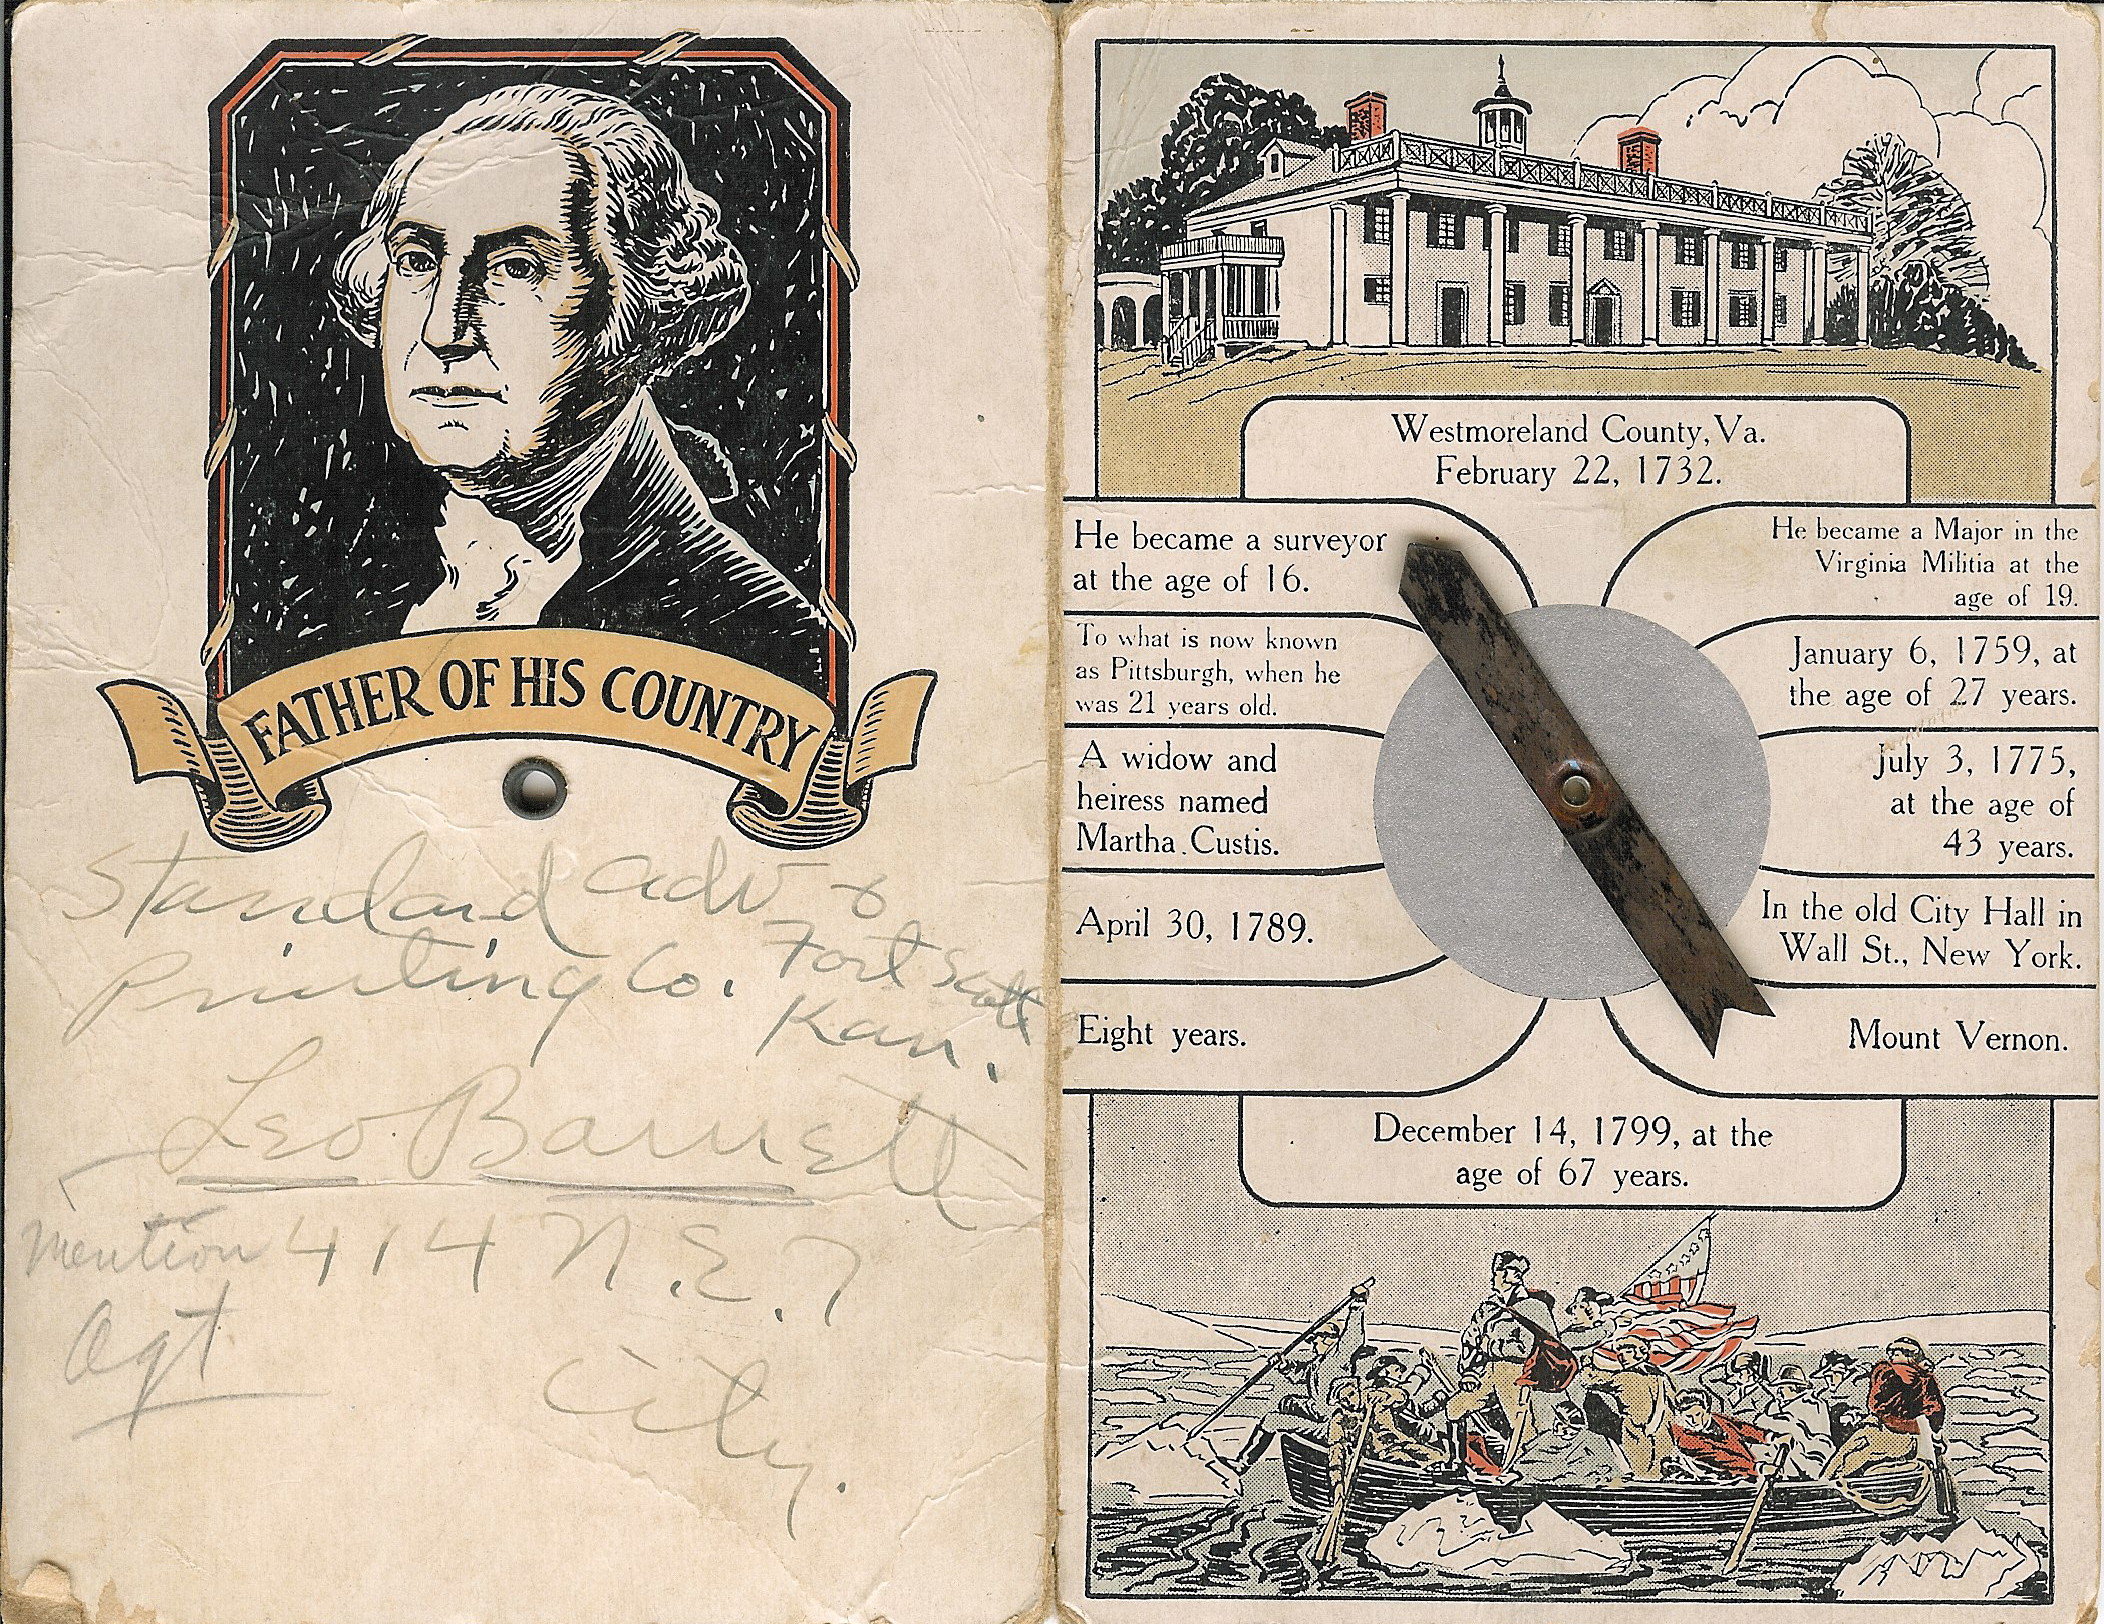 FATHER OF HIS COUNTRY
Standard Adv &
Printing Co. Fort Scott
Kan.
Leo Barnett
Mention 414 N.E. 7
Agt
City.
Westmoreland County, Va.
February 22, 1732.
He became a surveyor
at the age of 16.
He became a Major in the
Virginia Militia at the
age of 19.
To what is now known
as Pittsburgh, when he
was 21 years old.
January 6, 1759, at
the age of 27 years.
A widow and
heiress named
Martha Custis.
July 3, 1775,
at the age of
43 years.
April 30, 1789.
In the old City Hall in
Wall St., New York.
Eight years.
Mount Vernon.
December 14, 1799, at the
age of 67 years.